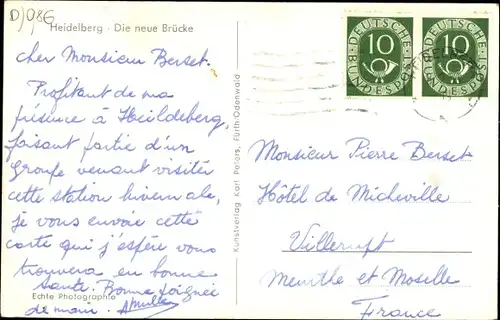 D)986
Heidelberg - Die neue Brücke
cher Monsieur Berset.
Profitant de ma
présence à Heildeberg,
faisant partie d'un
Groupe venant visiter
cette station hivernale,
je vous envoie cette
carte qui j'espère vous
trouvera en bonne
santé. Bonne poignée
de main.
Echte Photographie
Kunstverlag Karl Peters, Fürth/Odenwald
DEUTSCHE
10
BUNDESPOST
DEUTSCHE
10
BUNDESPOST
Monsieur Pierre Berset
Hôtel de Micheville
Villerupt
Meurthe et Moselle
France